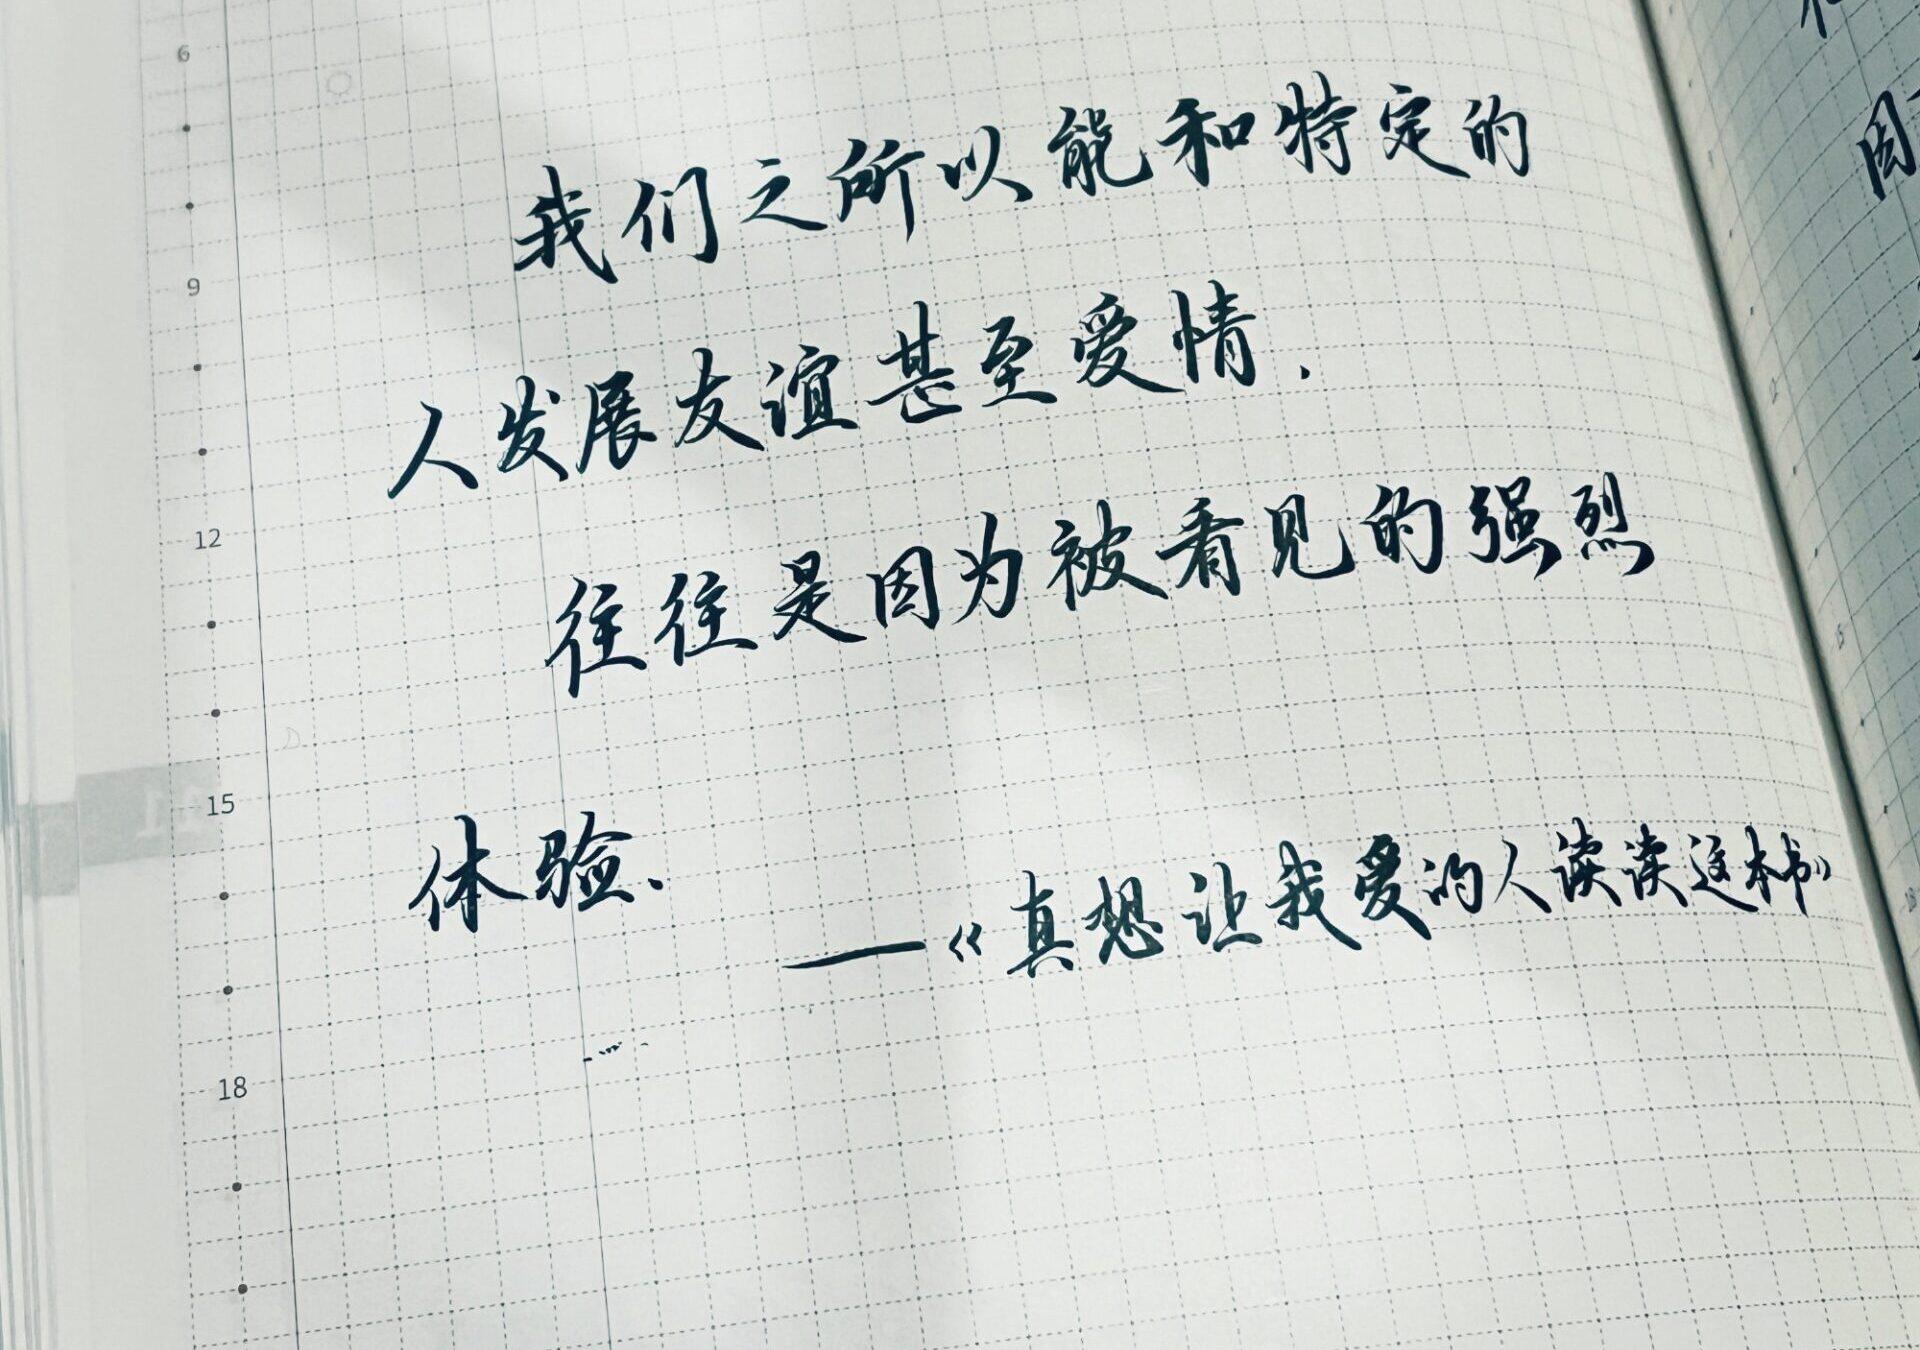 我们之所以能和特定的
人发展友谊甚至爱情.
往往是因为被看见的强烈
体验.
——《真想让我爱的人读读这本书》
6
9
12
15
18
11
因